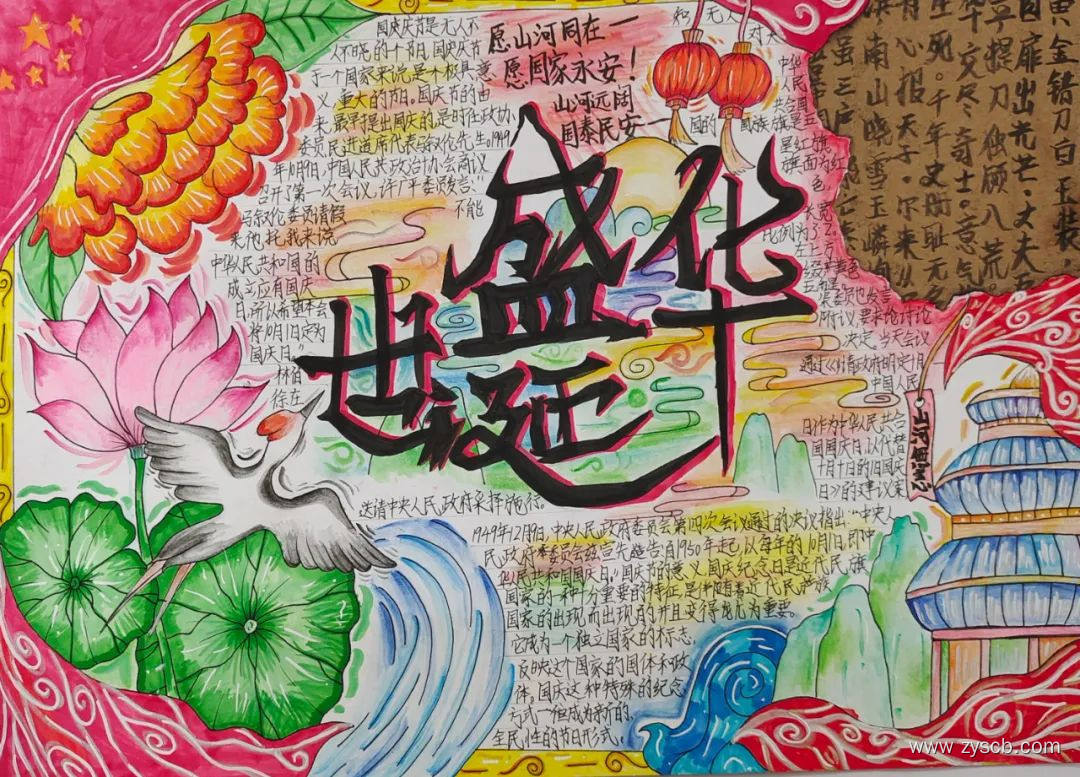 国庆节是无人不
人不晓的十节日,国庆节
于一个国家来说,是个极具意
义,重大的节日。国庆节的由
来,最早提出国庆的,是时任政协
委员民进道席代表马叙伦先生。1949
年10月1日,中国人民共政治协会商议
召开了第一次会议,许广平委员发言:
马叙伦委员请假
不能
来,他托我来说
中华人民共和国的
成立应有国庆
日,所以希望本会
将10月1日定为
国庆日。”
林伯
徐在
愿山河同在一
愿国家永安!
山河远阔
国泰民安
盛世华诞
和 无人
对大
中华
人民
共合国
国的 国旗族旗呈五
星红旗
旗面为红
色
长宽
比例为了
附议,要求论讨论
决定,当天会议
通过《请政府明定10月
中国人民
日作为中华人民共合
国国庆日,以代替
十月十日的旧国庆
日》的建议案
送请中央人民政府采择施行。
1949年12月2日,中央人民政府委员会第四次会议通过的决议指出:“中央人
民政府委员会兹宣先告自1950年起,以每年的10月1日,即中
华人民共和国国庆日。”国庆节的意义,国庆纪念日是近代民族
国家的一种十分重要的特征,是伴随着近代民族
国家的出现而出现的,并且变得尤为重要。
它成为一个独立国家的标志,
反映这个国家的国体和政
体,国庆这种特殊的纪念
方式一但成为新的、
全民性的节日形式,
黄金错刀白玉装,
目扉出光芒。丈夫五
草提刀独顾八荒
华交尽奇士。意气
生死。千年史册耻无名
有心报天子。尔来
滨南山晓雪玉嶙峋
虽三户
亡
山河无恙
www.zyscb.com